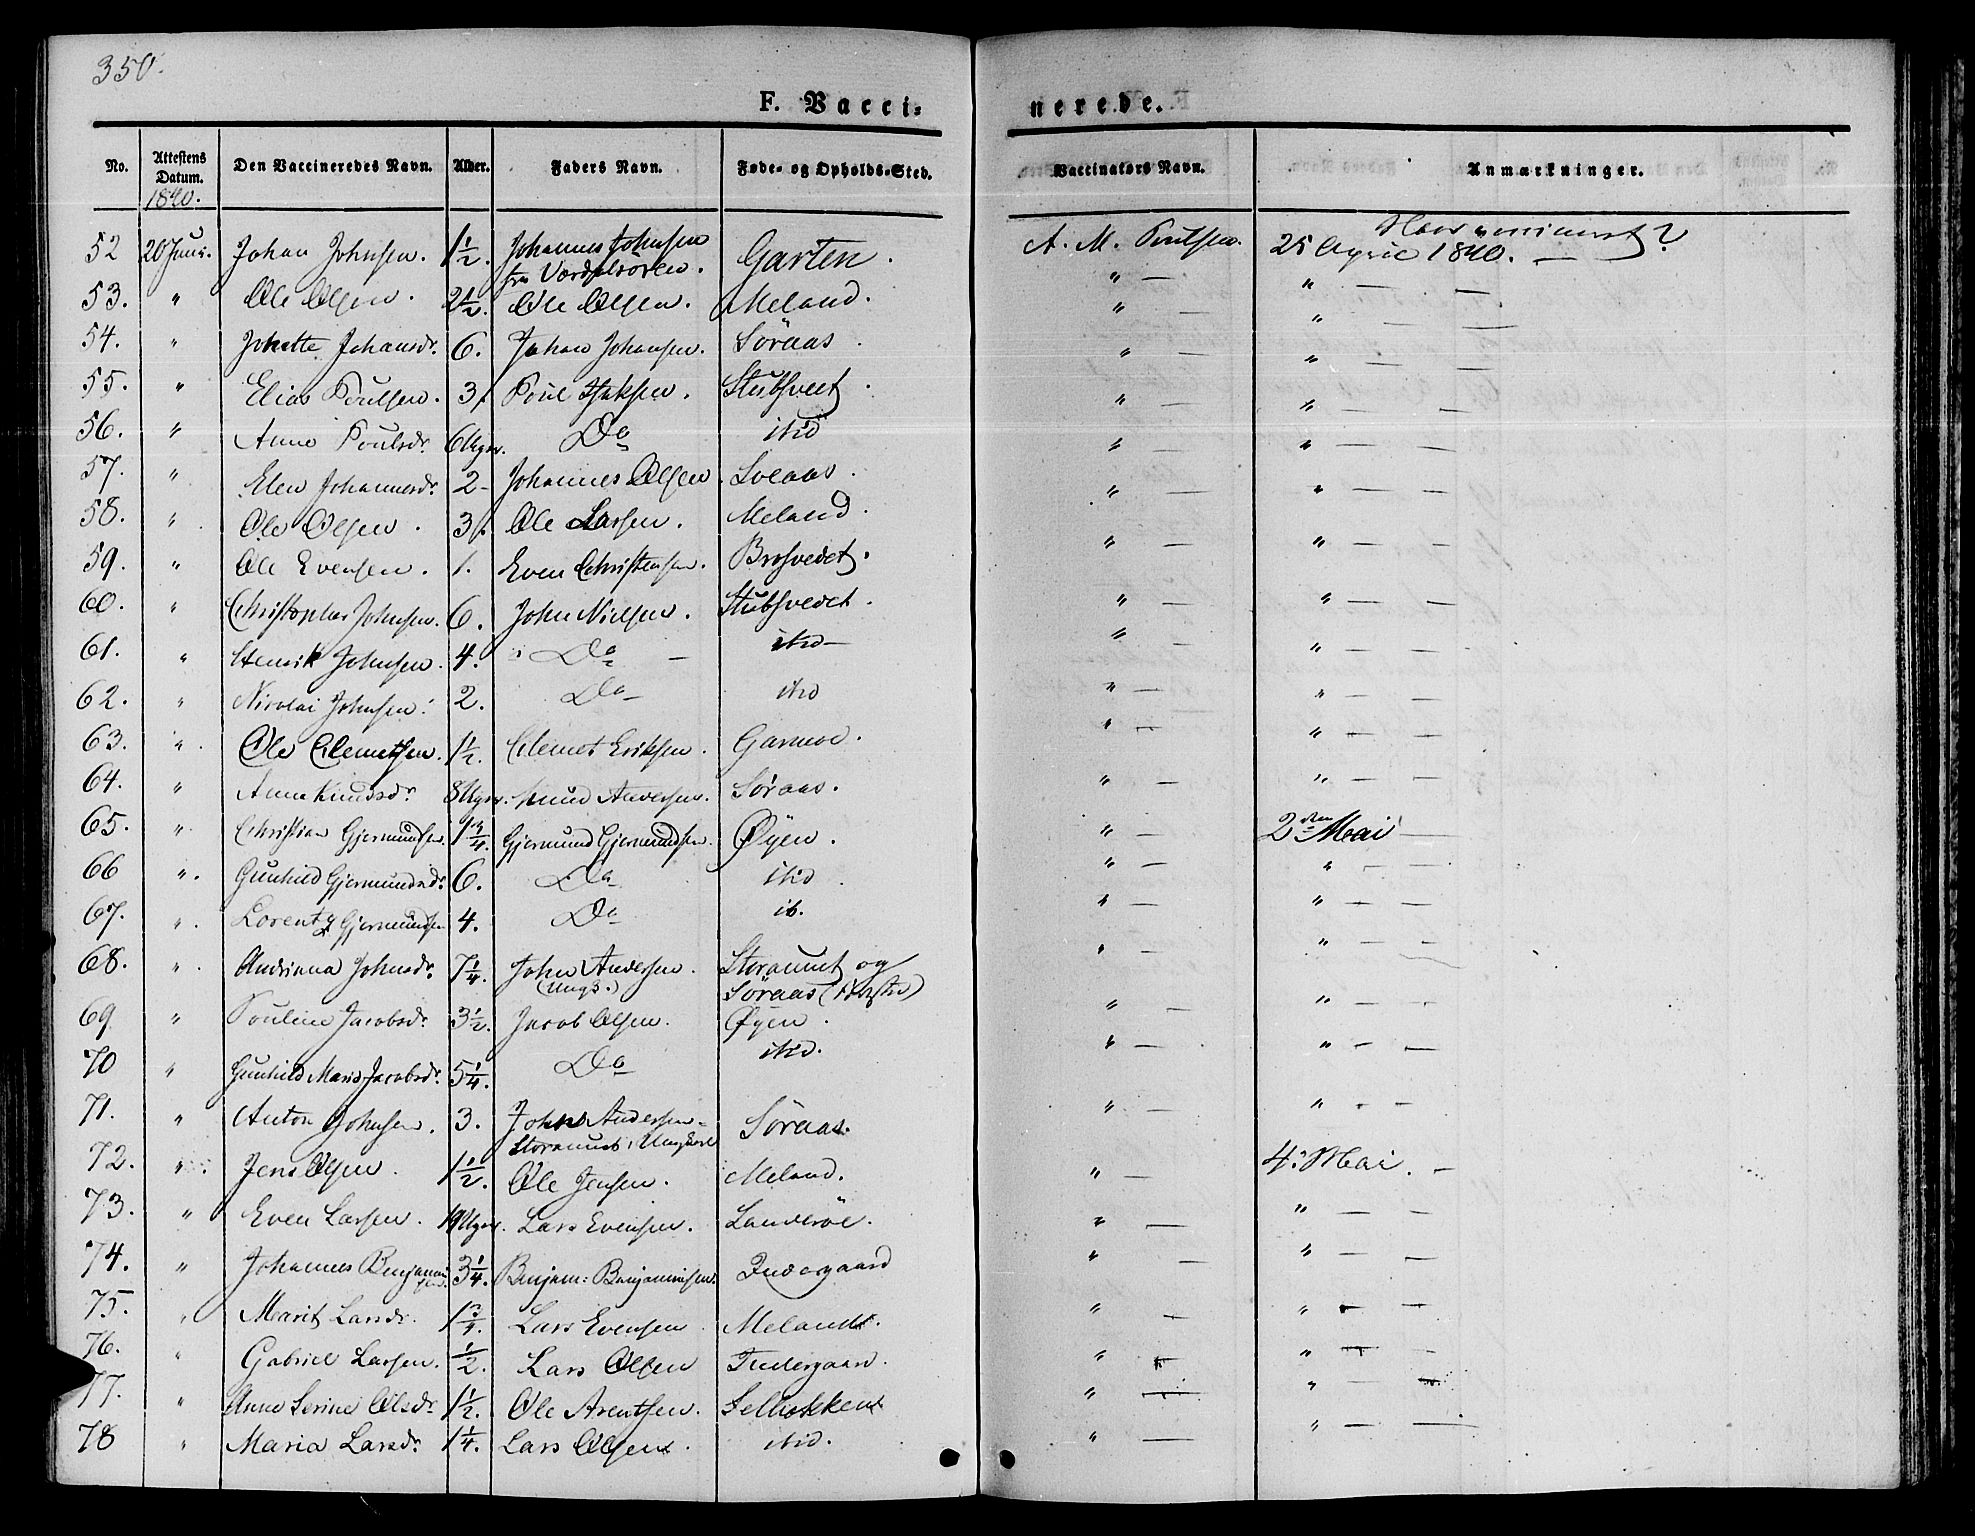 350.
F. Vacci-
nerede.
No. Attestens Datum. Den Vaccineredes Navn. Alder. Faders Navn. Føde- og Opholds-Sted. Vaccinators Navn. Anmærkninger.
1840.
52 20 Juni. Johan Johnsen. 1½. Johannes Johnsen Garten. A. M. Poulsen. 25 April 1840. —
fra
53. " Ole Olsen. 2½. Ole Olsen. Meland. " — " — —
54. " Johette Johansdr. 6. Johan Johansen. Söraas. " — " — —
55. " Elias Poulsen. 3. Poul Isaksen. Stubsveet. " — " —
56. " Anne Poulsdr. 6 Ugr. Do ibid " — " — —
57. " Elen Johannesdr. 2 - Johannes Olsen. Sveaas. " — " — —
58. " Ole Olsen. 3. Ole Larsen. Meland. " — " — —
59. " Ole Evensen. 1. Even Christensen. Brosvedet. " — " — —
60. " Christopher Johnsen. 6. John Nielsen. Stubsvedet. " — " — —
61. " Henrik Johnsen. 4. Do — ibid — " — " — —
62. " Nicolai Johnsen. 2. Do ibid " — " — —
63. " Ole Clemetsen. 1½. Clemet Eriksen. Garmoe. " — " — —
64. " Anne Knudsdr. 8 Ugr. Knud Andersen. Söraas. " — " — —
65. " Christian Gjermundsen. 1¾. Gjermund Gjermundsen. Øyen. " — 2den Mai —
66 " Gunhild Gjermundsdr. 6. Do ibid. " — " — —
67. " Lorents Gjermundsen 4. Do ib. " — " — —
68. " Andrina Johnsdr. 7¼. John Andersen. Storaunet og " — " — —
(Ungk.) Söraas
69 " Pouline Jacobsdr. 3½. Jacob Olsen. Øyen. " — " — —
70 " Gunhild Maria Jacobsdr. 5¼. Do ibid. " — " — —
71. " Anton Johnsen. 3. John Andersen Söraas. " — " — —
Storaunet, Ungkarl
72. " Jens Olsen. 1½. Ole Jensen. Meland. " — 4. Mai. —
73. " Even Larsen. 19 Ugr. Lars Evensen. Landeröe. " — " — —
74. " Johannes Benjaminsen. 3¼. Benjam: Benjaminsen. Indergaard " — " — —
75. " Marit Larsdr. 1¾. Lars Evensen Meland. " — " — —
76. " Gabriel Larsen. ½. Lars Olsen Indergaard. " — " — —
77. " Anne Serine Olsdr. 1½. Ole Arentsen. Selbekken " — " — —
78 " Maria Larsdr. 1¼. Lars Olsen. ibid. " — " — —